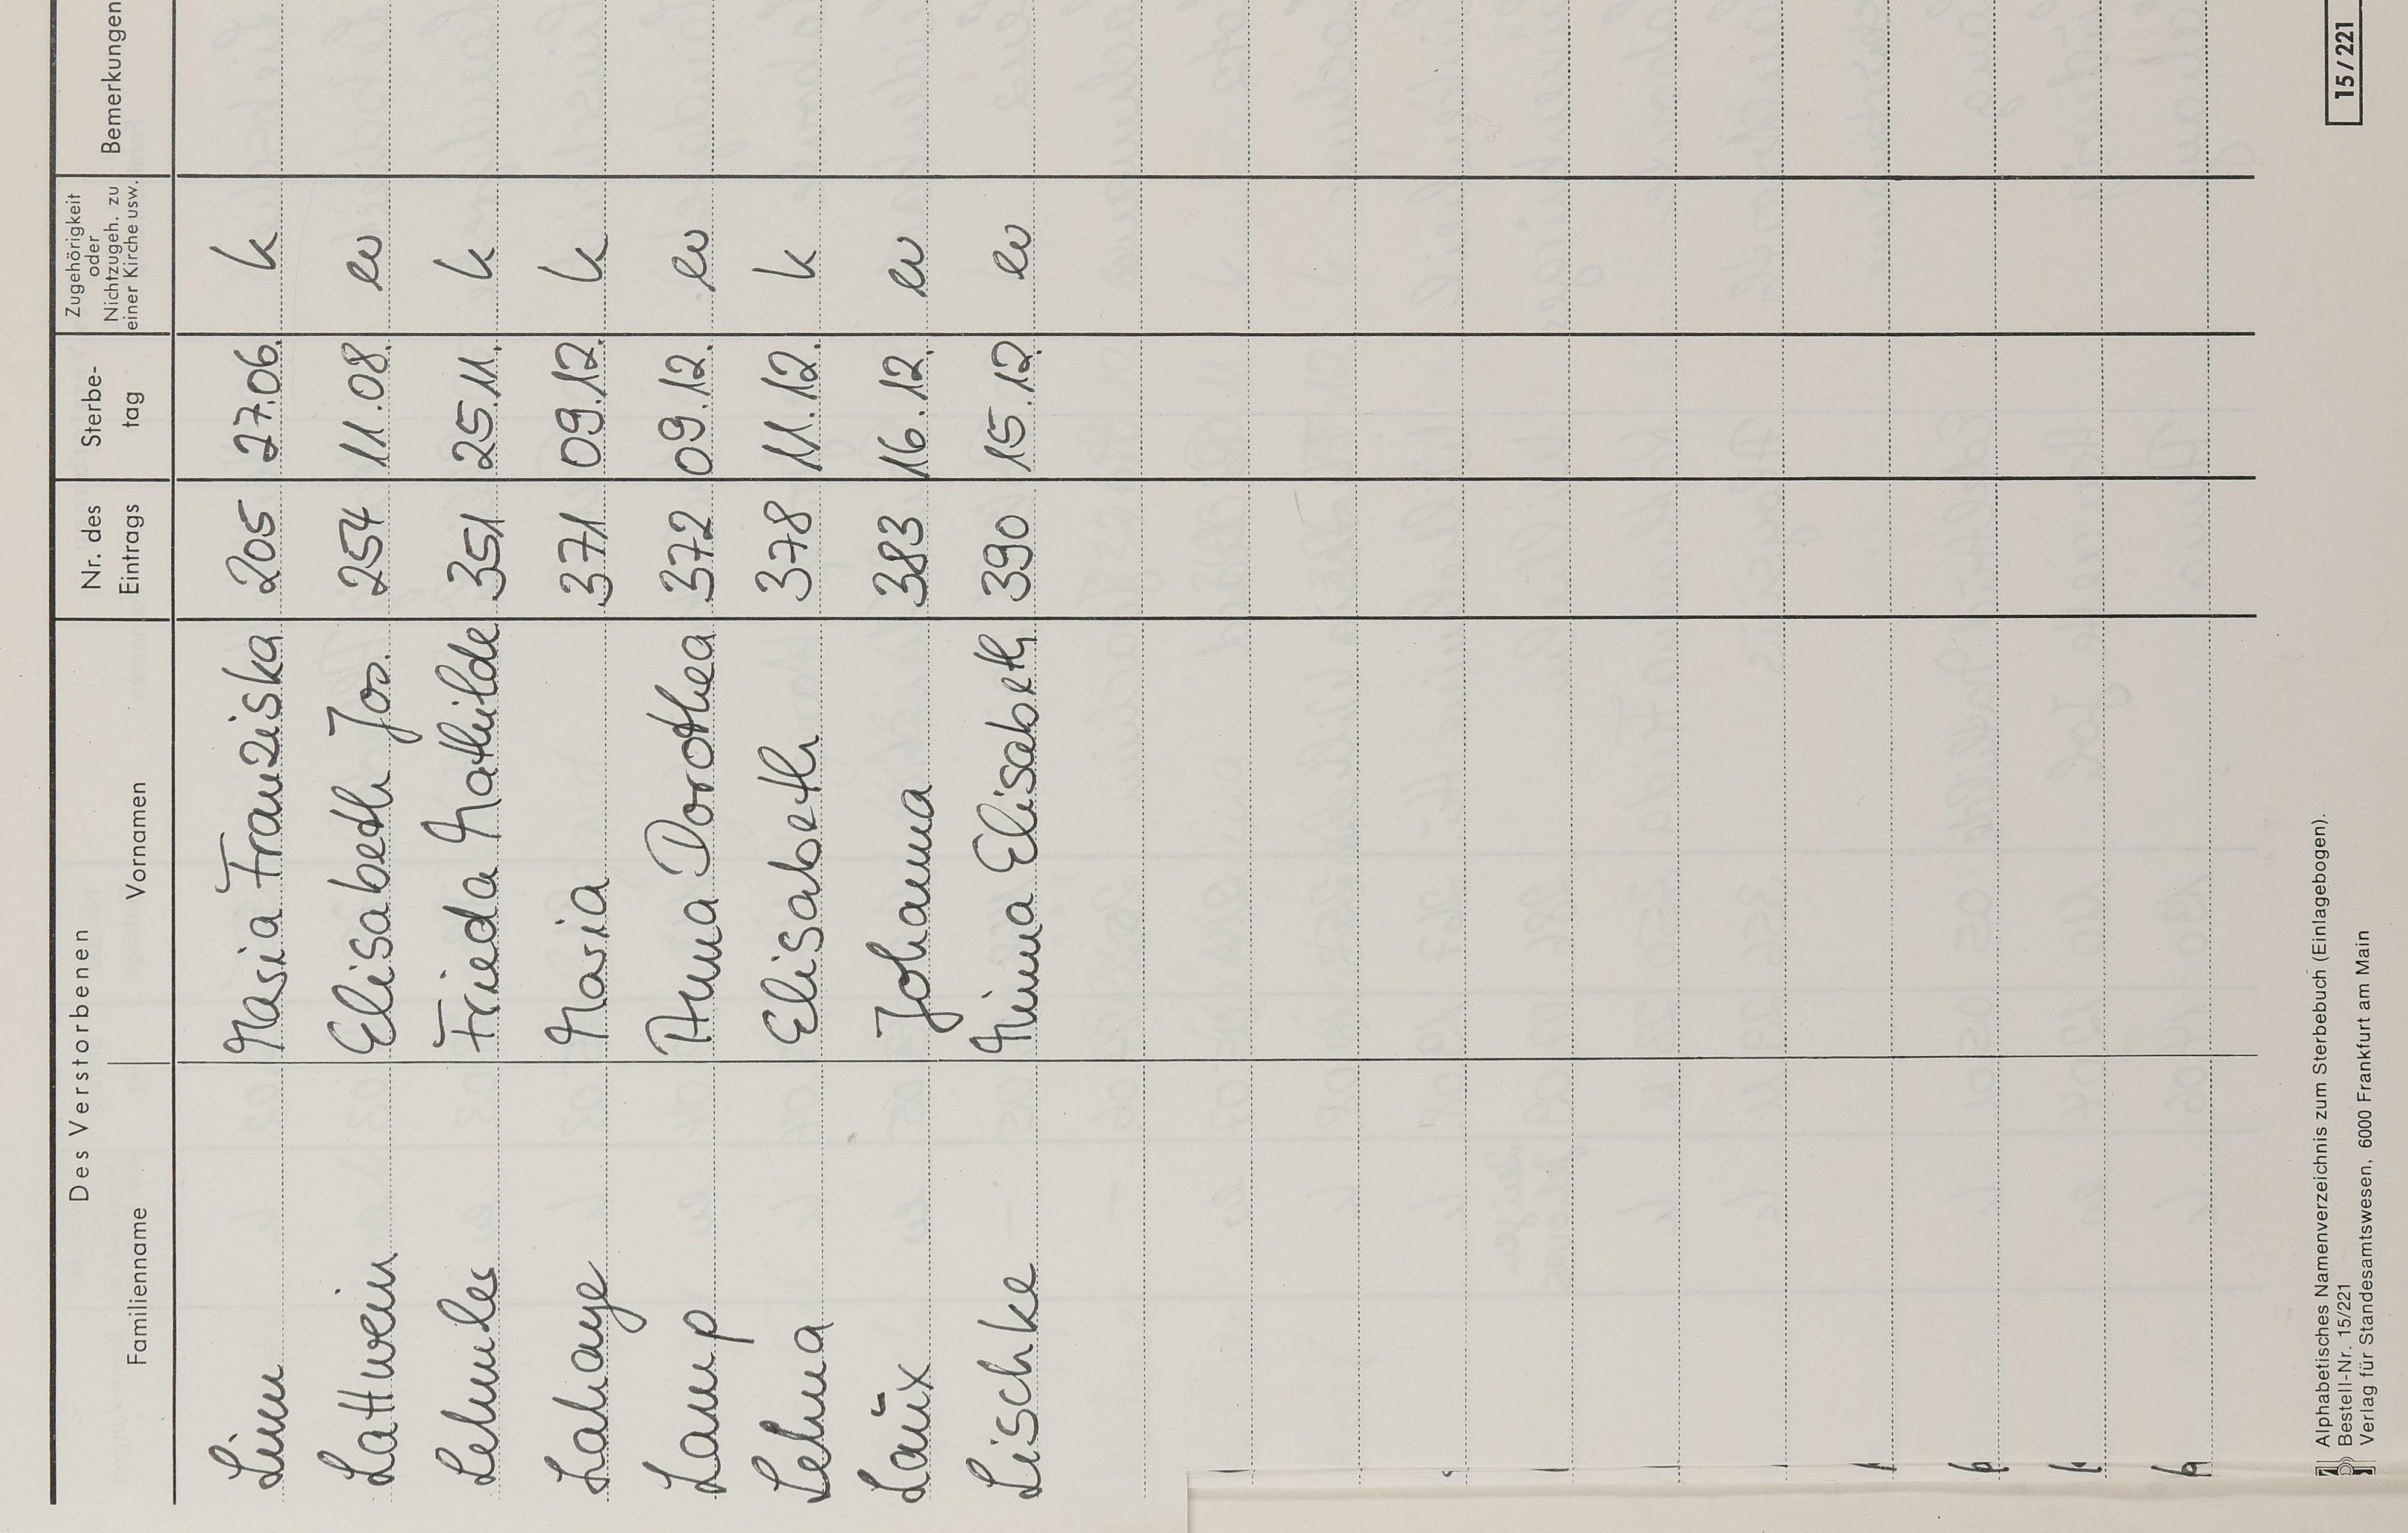 Des Verstorbenen
Familienname Vornamen Nr. des Eintrags Sterbe-tag Zugehörigkeit oder Nichtzugeh. zu einer Kirche usw. Bemerkungen
Linn Maria Franziska 205 27.06. k
Lattwein Elisabeth Jos. 254 11.08. ev
Lehmler Frieda Mathilde 351 25.11. k
Lahaye Maria 371 09.12. k
Lamp Anna Dorothea 372 09.12. ev
Lehna Elisabeth 378 11.12. k
Laux Johanna 383 16.12. ev
Lischke Minna Elisabeth 390 15.12. ev
Alphabetisches Namenverzeichnis zum Sterbebuch (Einlagebogen).
Bestell-Nr. 15/221
Verlag für Standesamtswesen, 6000 Frankfurt am Main
15/221